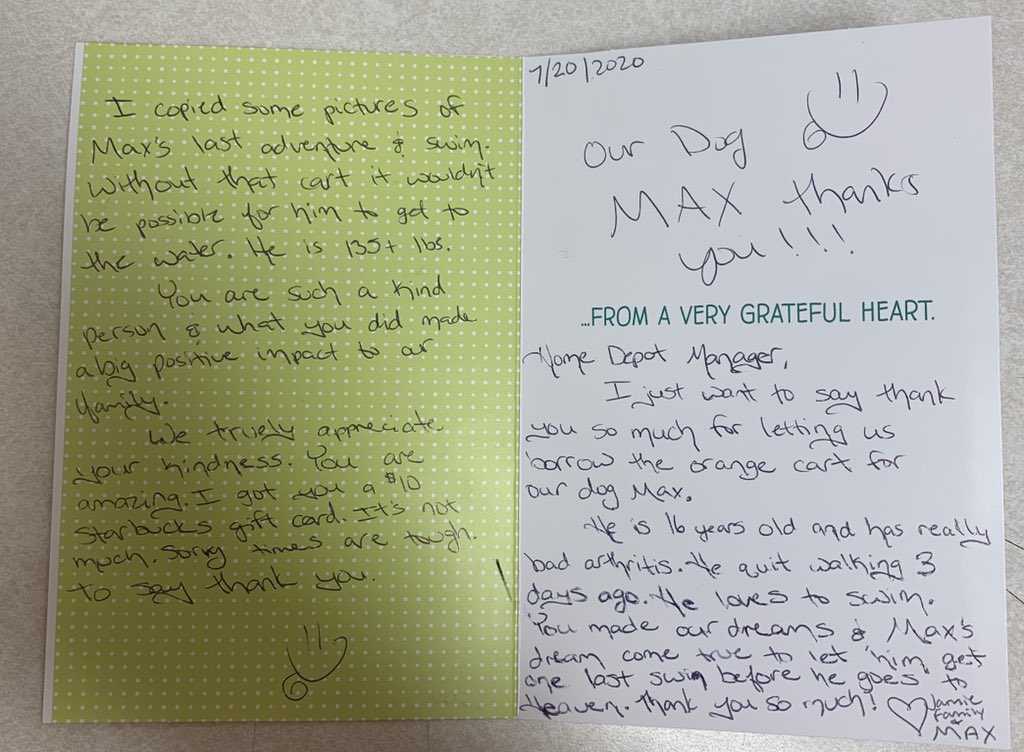 I copied some pictures of
Max's last adventure & swim.
Without that cart it wouldn't
be possible for him to get to
the water. He is 135+ lbs.
You are such a kind
person & what you did made
a big positive impact to our
family.
We truely appreciate
your kindness. You are
amazing. I got you a $10
Starbucks gift card. It's not
much. Sorry times are tough.
to say thank you.
7/20/2020
Our Dog
MAX thanks
you!!!!
...FROM A VERY GRATEFUL HEART.
Home Depot Manager,
I just want to say thank
you so much for letting us
borrow the orange cart for
our dog Max.
He is 16 years old and has really
bad arthritis. He quit walking 3
days ago. He loves to swim.
You made our dreams & Max's
dream come true to let him get
one last swim before he goes to
Heaven. Thank you so much! Jamie
family
&
MAX